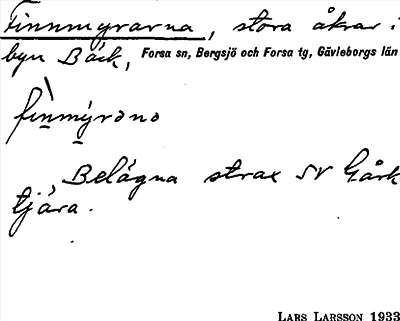 Finnmyrarna, stora åkrar i
byn Bäck, Forsa sn, Bergsjö och Forsa tg, Gävleborgs län
finmýrəno
Belägna strax SV Gårk
tjära.
LARS LARSSON 1933